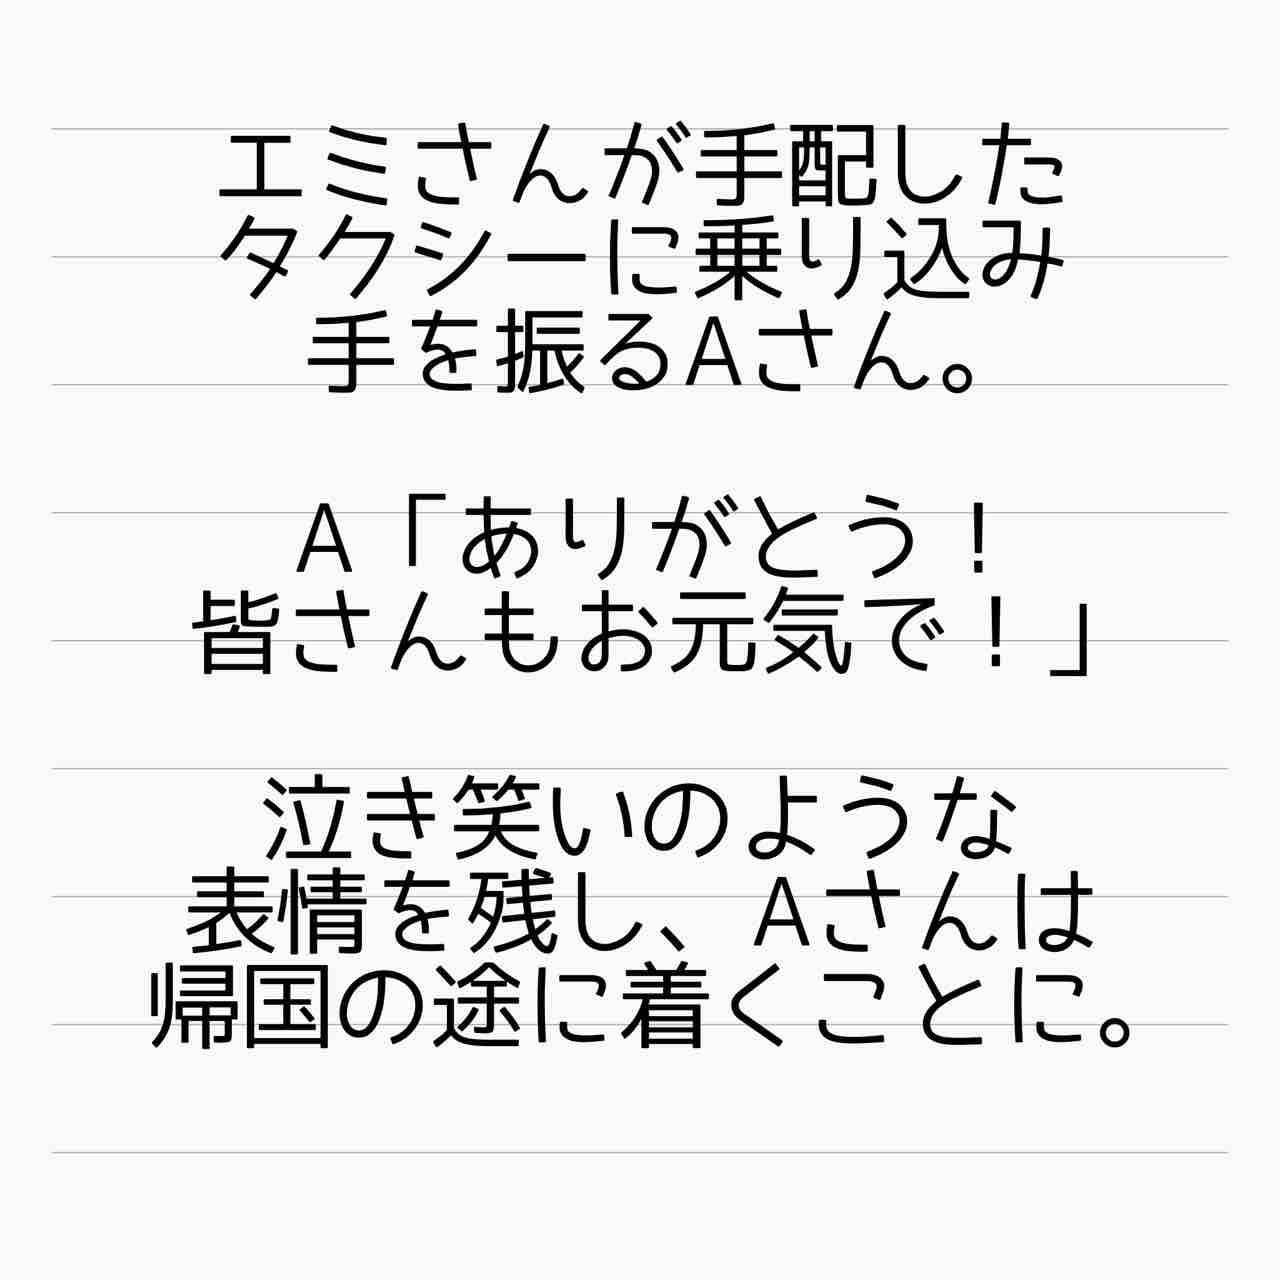 エミさんが手配した
タクシーに乗り込み
手を振るAさん。
A「ありがとう！
皆さんもお元気で！」
泣き笑いのような
表情を残し、Aさんは
帰国の途に着くことに。